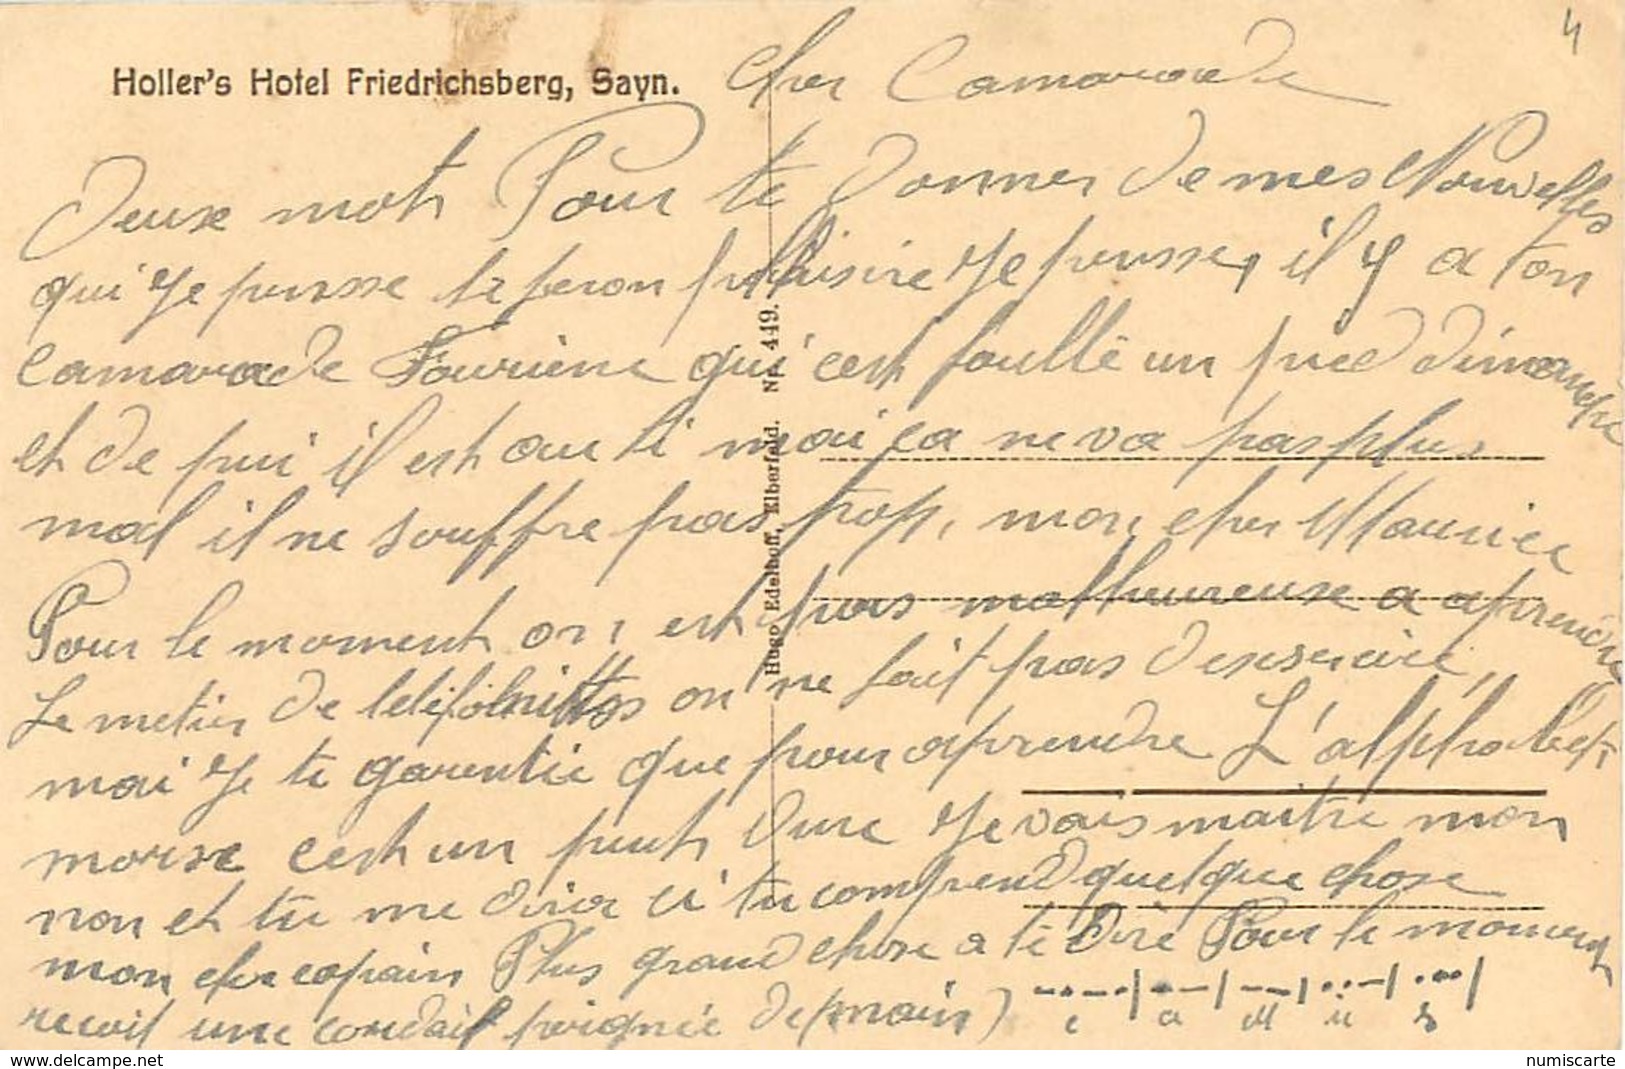 4
Holler's Hotel Friedrichsberg, Sayn.
Cher Camarade
Deuxe mots Pour te donner de mes Nouvelles
qui Je pensse te feron plaisire Je pensse, il y a ton
camarade qui cest foullé un pied dimanche
et de pui il est au li mai ça ne va pas plus
mal il ne souffre pas trop, mon cher Maurice
Pour le moment on est pas malheureuse a aprendre
Le metier de on ne fait pas
mai Je te garentie que pour aprendre L'alphabet
morse cest un peut dure Je vais maitre mon
non et tu me dira ci tu comprend quelque chose
mon cher copain Plus grand chose a te dire Pour le moment
recoit une cordail poignée de main)
Hugo Edelhoff, Elberfeld. No. 449.